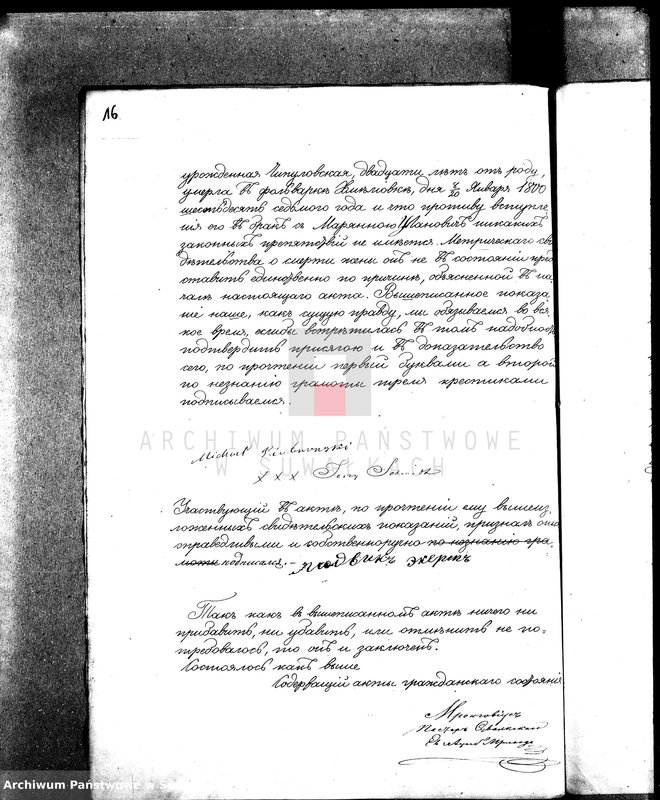 16
урожденная Чипуловская, двадцати лѣтъ отъ роду,
умерла въ фольваркѣ дня 8/20 Января 1800
шестьдесятъ седьмого года и что противу вступле
нія его въ бракъ съ Марянною Улановичъ никакихъ
законныхъ препятствій не имѣется. Метрическаго сви
дѣтельства о смерти жены онъ не въ состояніи пред
ставить единственно по причинѣ, объясненной въ на
чалѣ настоящаго акта. Вышеписанное показа
ніе наше, какъ сущую правду, мы обязываемся во вся
кое время, еслибы встрѣтилась въ томъ надобность
подтвердить присягою и въ доказательство
сего, по прочтеніи первый буквами а второй
по незнанію грамоты тремя крестиками
подписываемся.
Michael
x x x Jerzy
ARCHIWUM PAŃSTWOWE
W SUWAŁKACH
Участвующій въ актѣ, по прочтеніи ему вышеиз
ложенныхъ свидѣтельскихъ показаній, призналъ оныя
справедливыми и собственноручно по незнанію гра
моты подписался. — Людвикъ Экертъ
Такъ какъ въ вышеписанномъ актѣ ничего ни
прибавить, ни убавить, или отмѣнить не по-
требовалось, то онъ и заключенъ.
Состоялось какъ выше
Содержащій акты гражданскаго состоянія
Мронговіусъ
Пасторъ Сувалкский
Archiwum Państwowe w S